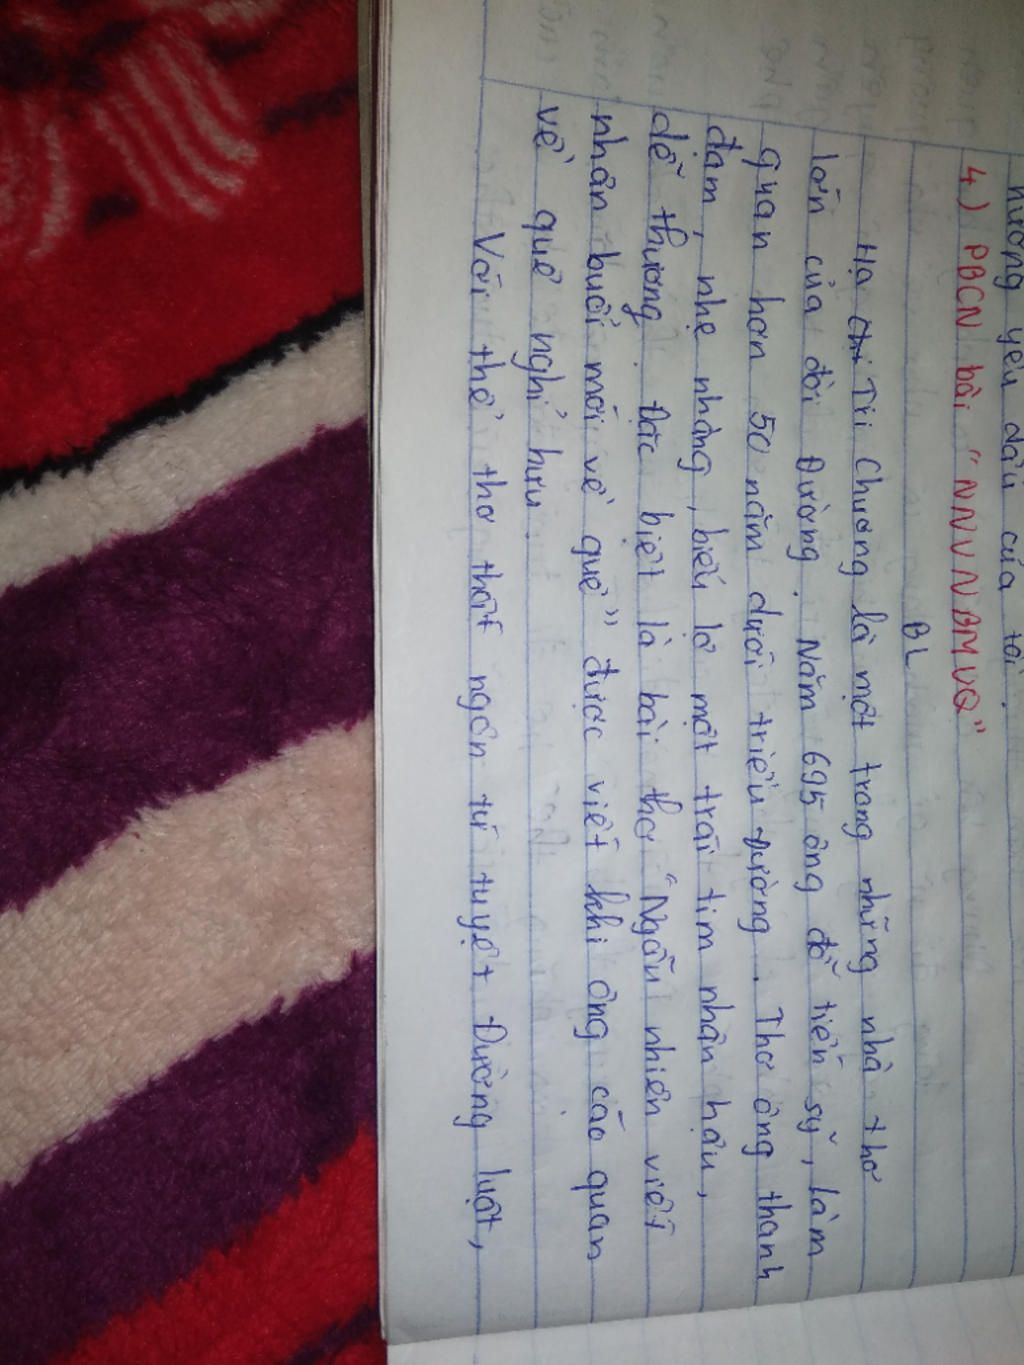 hương yêu dấu của tôi.
4.) PBCN bài "NNVNBMVQ"
BL
Hạ Tri Chương là một trong những nhà thơ
lớn của đời Đường. Năm 695 ông đỗ tiến sỹ, làm
quan hơn 50 năm dưới triều Đường. Thơ ông thanh
đạm, nhẹ nhàng, biểu lộ một trái tim nhân hậu,
dễ thương. Đặc biệt là bài thơ "Ngẫu nhiên viết
nhân buổi mới về quê" được viết khi ông cáo quan
về quê nghỉ hưu.
Với thể thơ thất ngôn tứ tuyệt Đường luật,